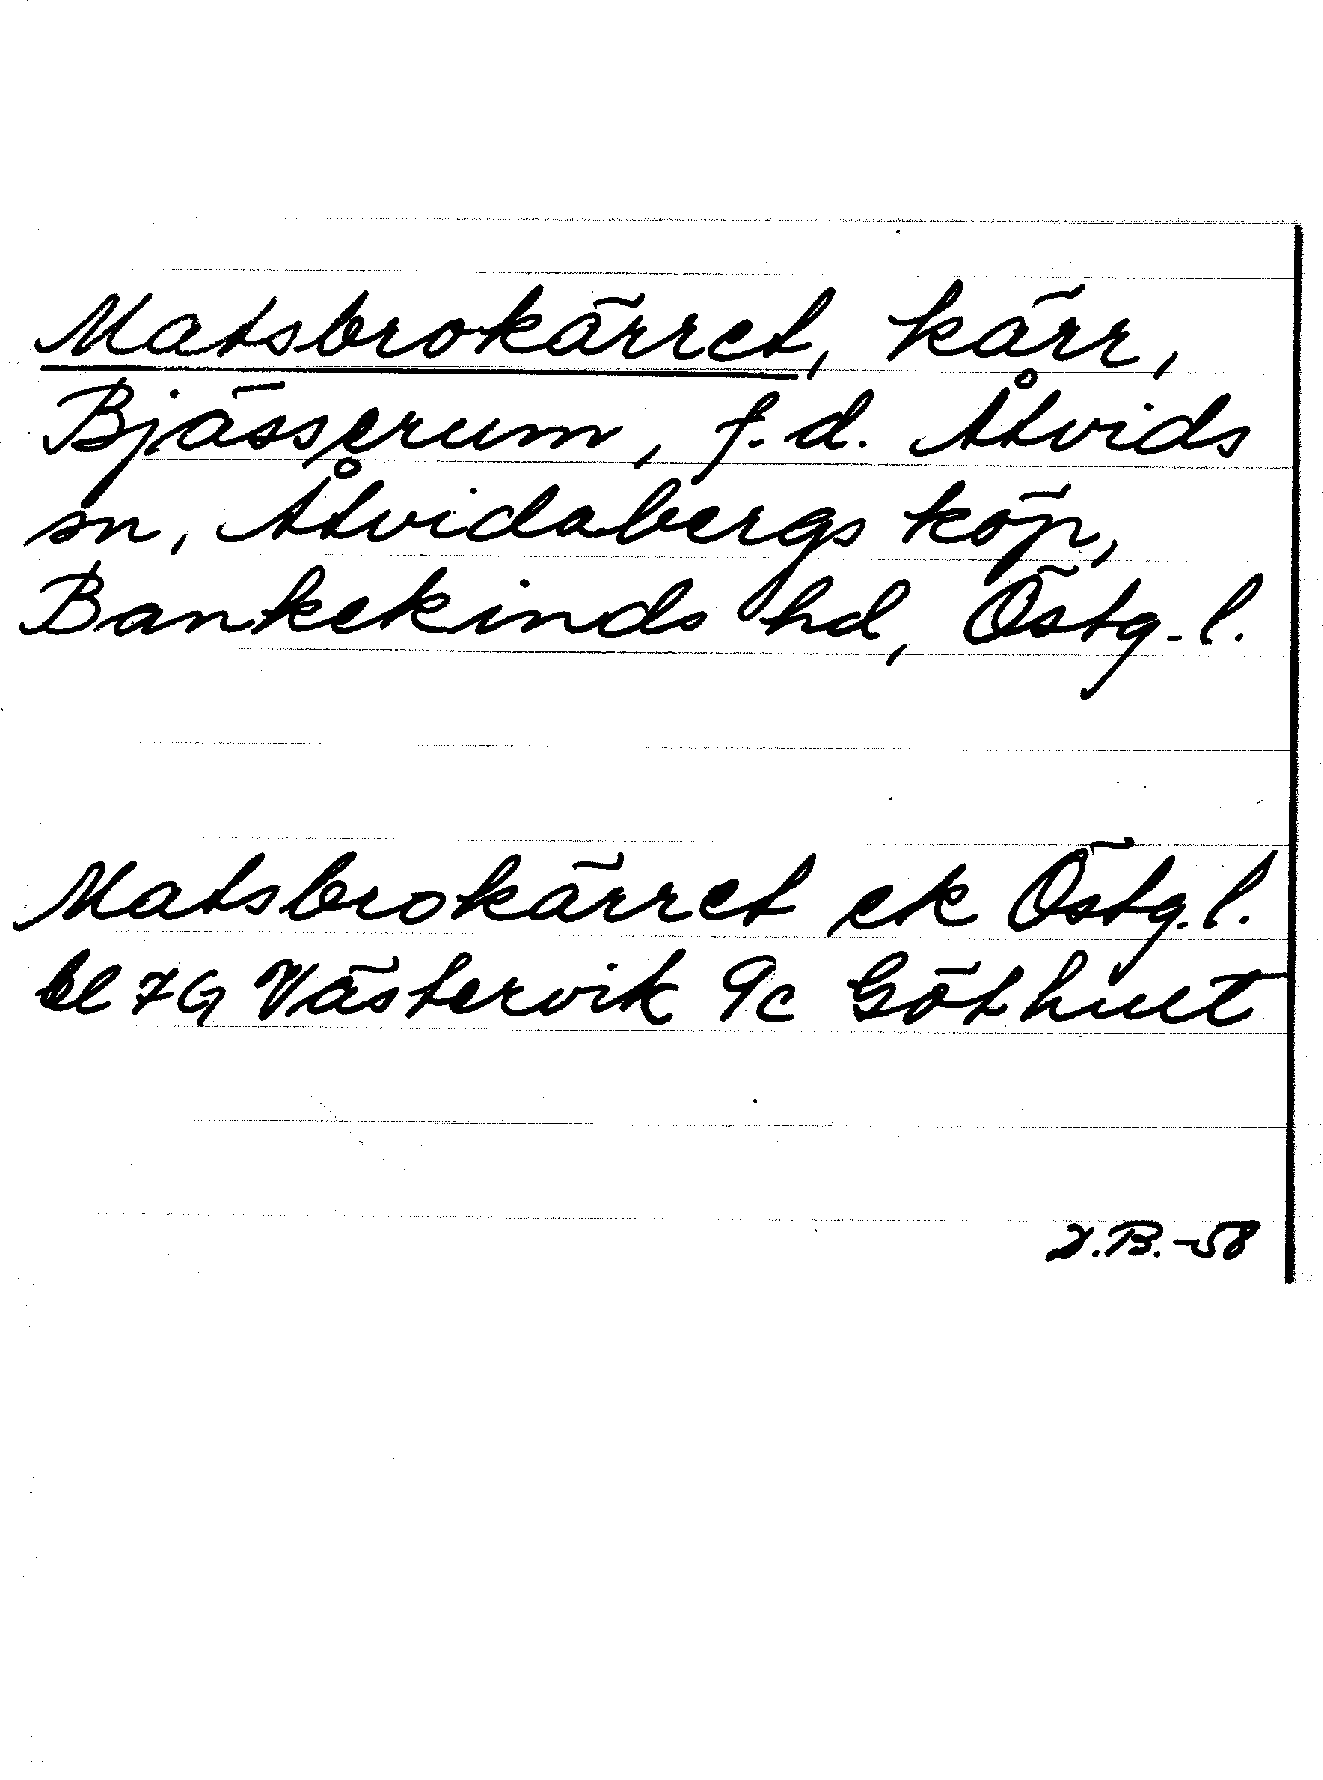 Matsbrokärret, kärr,
Bjässerum, f.d. Åtvids
sn, Åtvidabergs köp,
Bankekinds hd, Östg. l.
Matsbrokärret ek Östg. l.
bl 7G Västervik 9c Göthult
B.-58